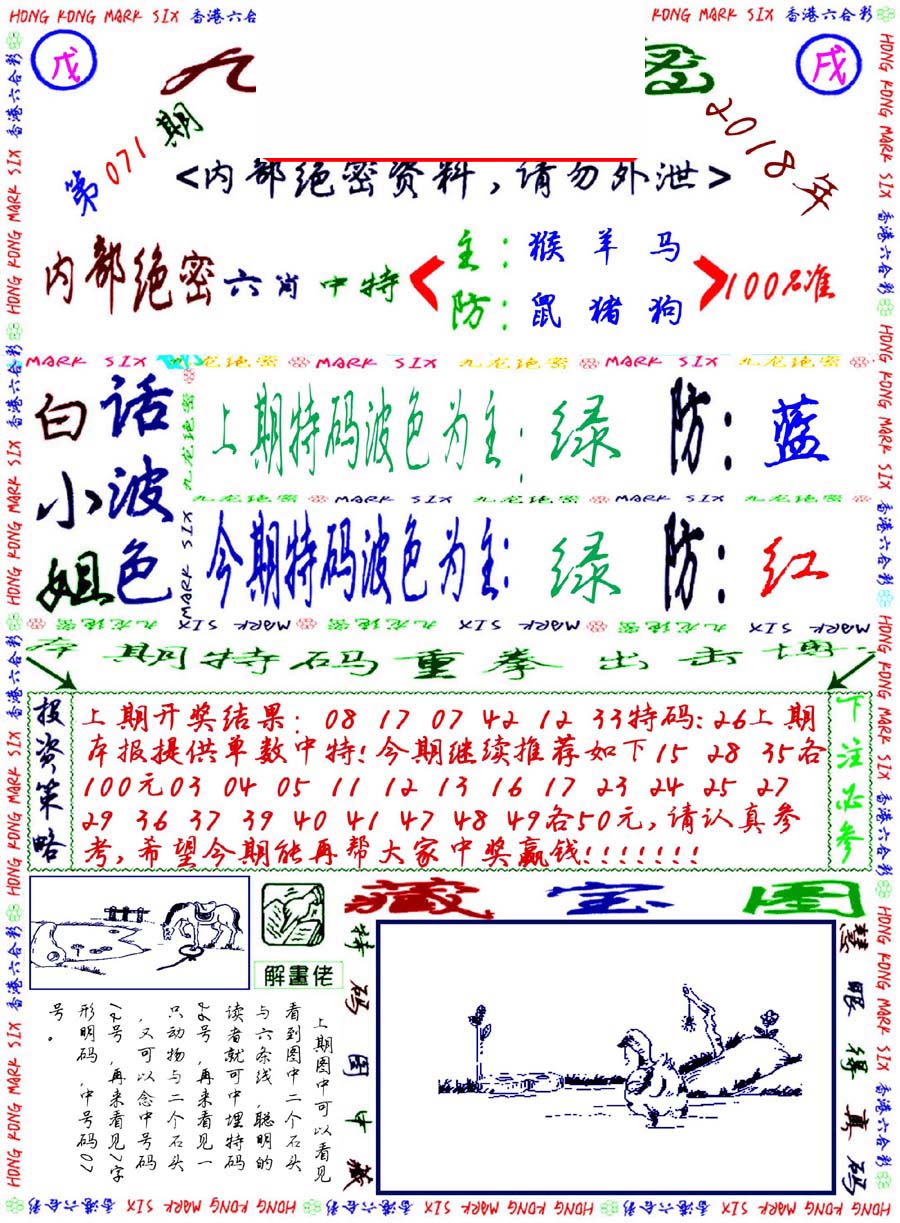 HONG KONG MARK SIX 香港六合彩
HONG KONG MARK SIX 香港六合彩
戊
九
密
戌
第071期
2018年
<内部绝密资料,请勿外泄>
内部绝密六肖中特
主:猴羊马
防:鼠猪狗
100%准
MARK SIX 九龙绝密 MARK SIX 九龙绝密 MARK SIX 九龙绝密
白小姐
话波色
上期特码波色为主:绿 防:蓝
九龙绝密 MARK SIX 九龙绝密 MARK SIX 九龙绝密
今期特码波色为主:绿 防:红
九龙绝密 MARK SIX 九龙绝密 MARK SIX 九龙绝密 MARK SIX
本期特码重拳出击博
投资策略
上期开奖结果:08 17 07 42 12 33特码:26上期
本报提供单数中特!今期继续推荐如下15 28 35各
100元03 04 05 11 12 13 16 17 23 24 25 27
29 36 37 39 40 41 47 48 49各50元,请认真参
考,希望今期能再帮大家中奖赢钱!!!!!!!
下注必参
解畫佬
藏宝图
上期图中可以看见
看到图中二个石头
与六条线,聪明的
读者就可中埋特码
26号,再来看见一
只动物与二个石头
,又可以念中号码
12号,再来看见7字
形明码,中号码07
号。
特码图中藏
慧眼得真码
HONG KONG MARK SIX 香港六合彩